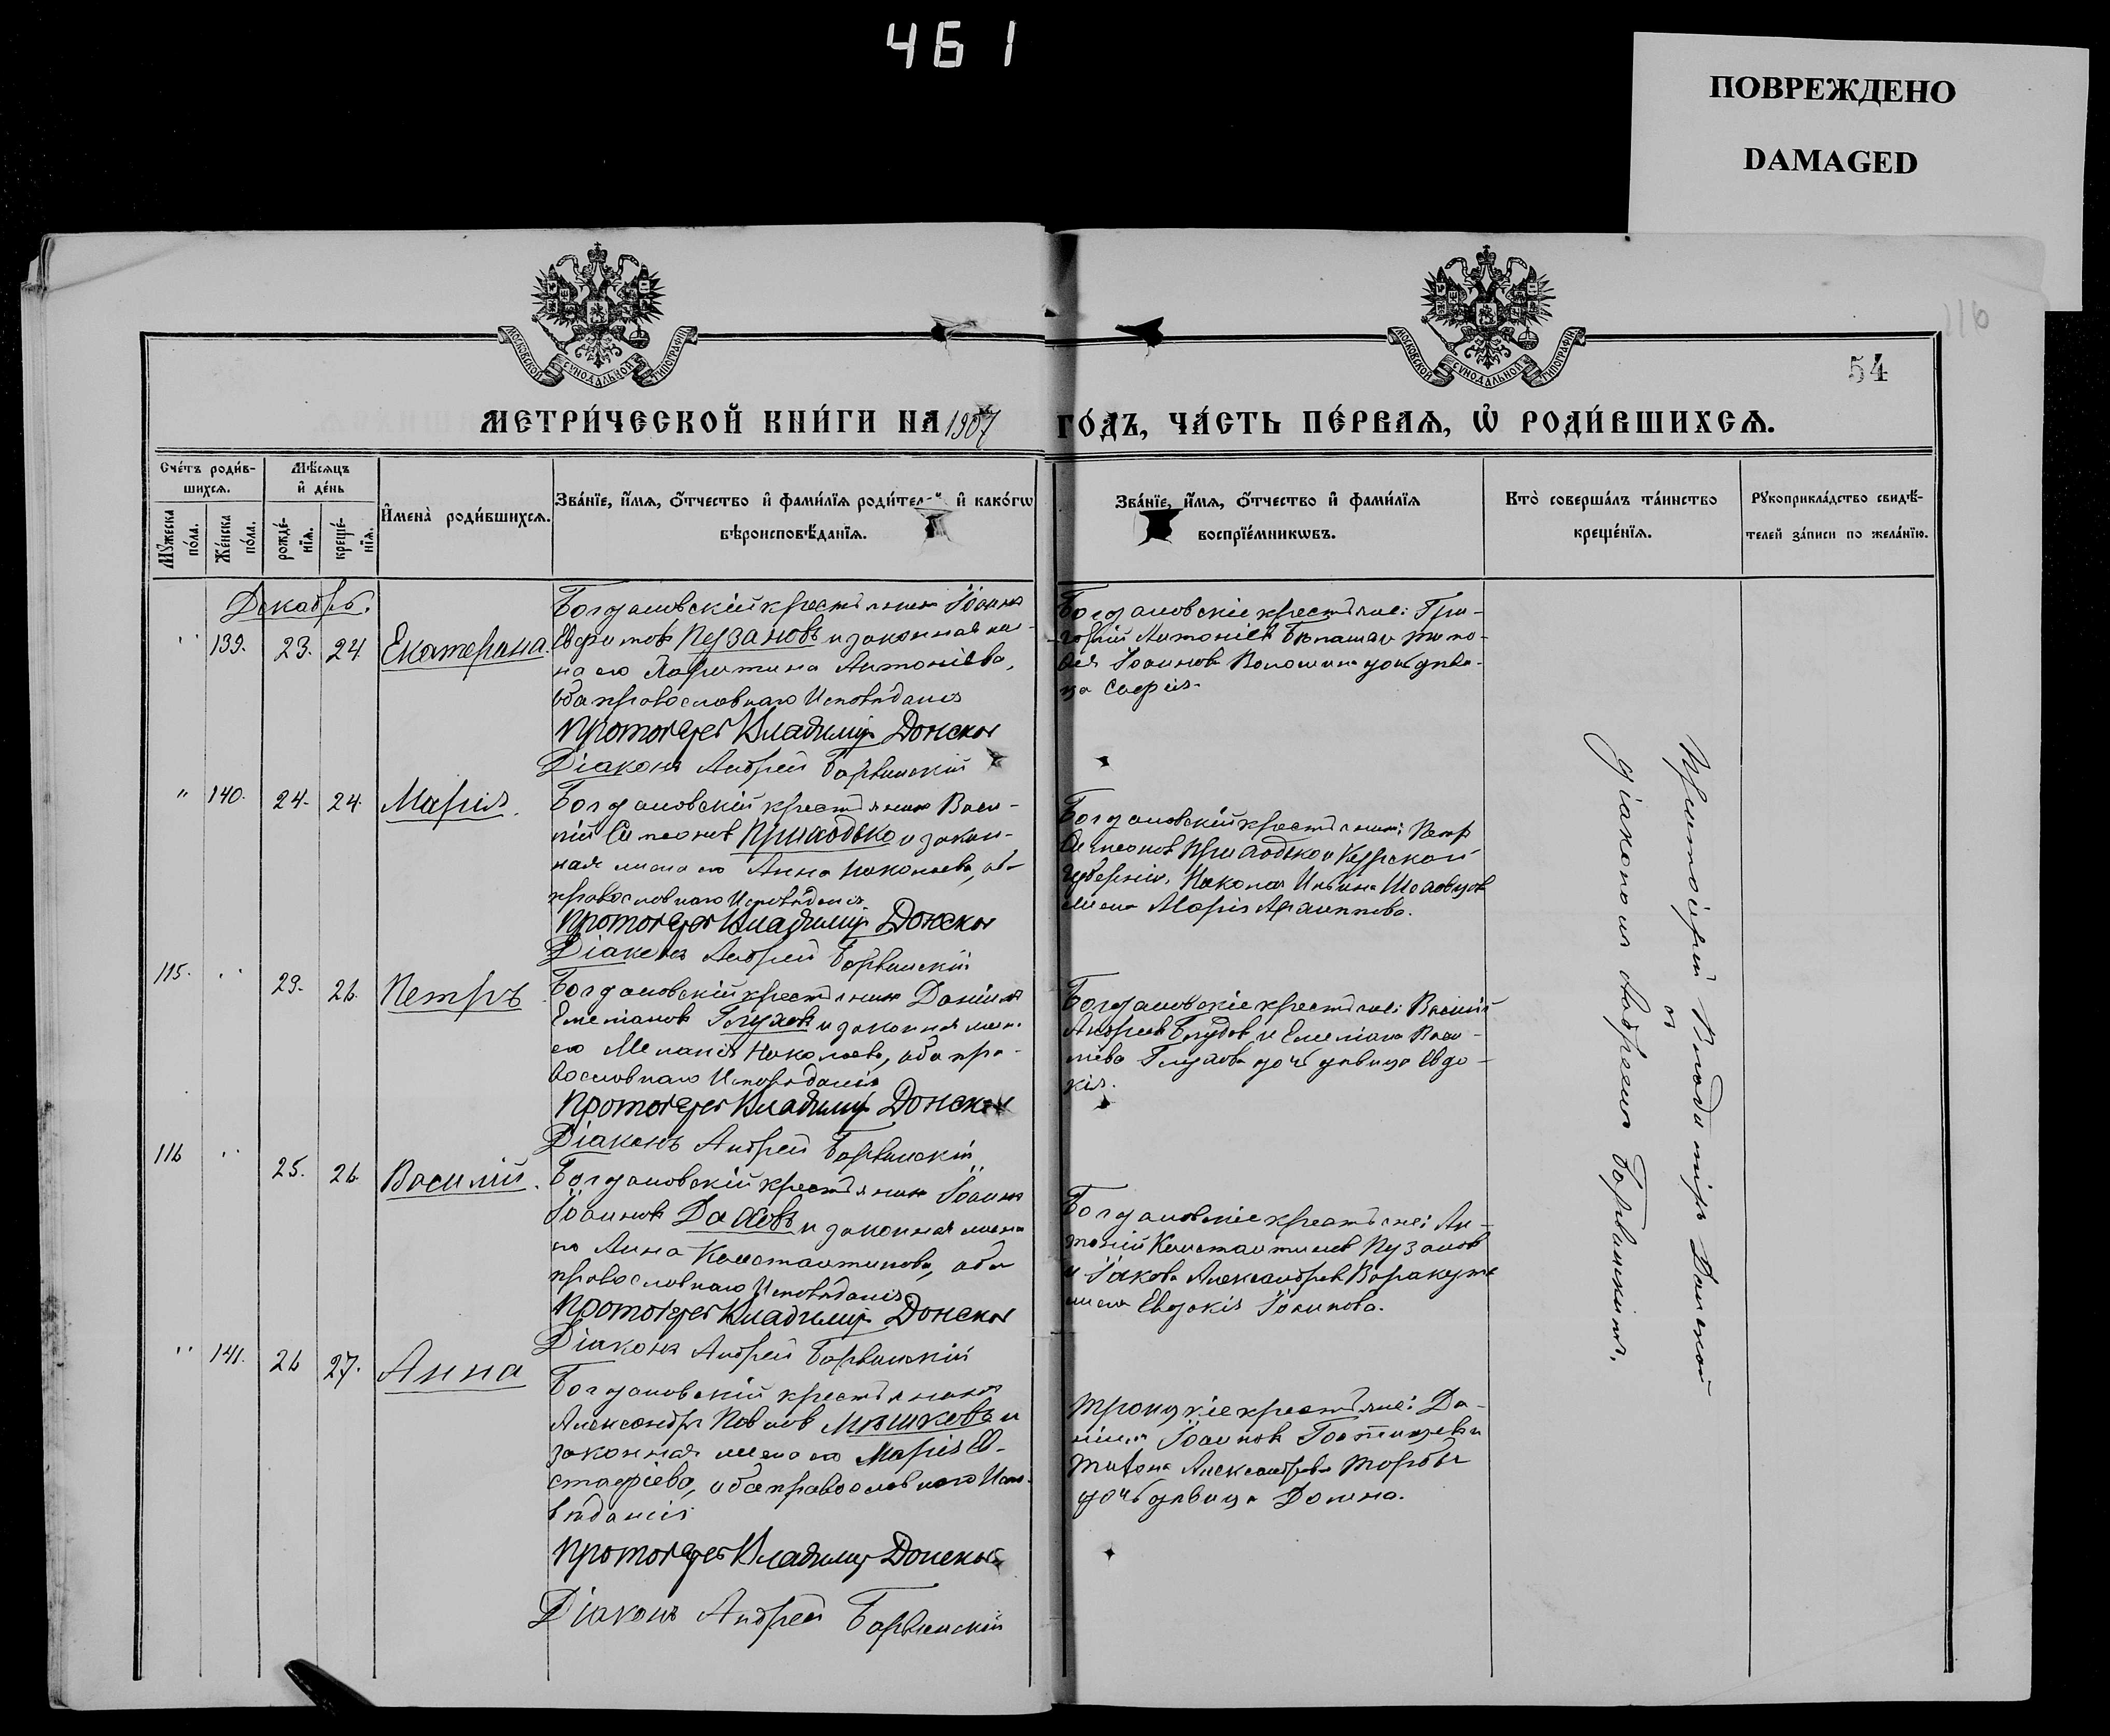 461
ПОВРЕЖДЕНО
DAMAGED
116
54
МОСКОВСКОЙ СѴНОДАЛЬНОЙ ТИПОГРАФІИ
МОСКОВСКОЙ СѴНОДАЛЬНОЙ ТИПОГРАФІИ
МЕТРИ́ЧЕСКОЙ КНИ́ГИ НА 1907 ГО́ДЪ, ЧА́СТЬ ПЕ́РВАѦ, Ѡ҆ РОДИ́ВШИХСѦ.
Сче́тъ роди́в-
шихсѧ.
Мꙋжеска по́ла.
Же́нска по́ла.
Мѣ́сѧцъ
и҆ де́нь
рожде́-
нїѧ.
креще́-
нїѧ.
И҆мена̀ роди́вшихсѧ.
Зва́нїе, и҆́мѧ, ѻ҆́тчество и҆ фами́лїѧ роди́тел й и҆ како́гѡ
вѣроисповѣ́данїѧ.
Зва́нїе, и҆́мѧ, ѻ҆́тчество и҆ фами́лїѧ
воспрїе́мникѡвъ.
Кто̀ соверша́лъ та́инство
креще́нїѧ.
Рꙋкоприкла́дство свидѣ́-
телей за́писи по жела́нїю.
Декабрь.
" 139. 23. 24 Екатерина
Богдановскій крестьянинъ Іоаннъ
Пузановъ и законная же-
на его Харитина Антоніева,
оба православнаго Исповѣданія
Протоіерей Владиміръ Донской
Діаконъ Андрей Барвинскій
Богдановскіе крестьяне: Гри-
горій Антоніевъ и
Іоаннова Волошина дочь дѣви-
ца Софія.
" 140. 24. 24. Марія.
Богдановскій крестьянинъ Васи-
лій Симеоновъ Приходько и закон-
ная жена его Анна Николаева, оба
православнаго Исповѣданія
Протоіерей Владиміръ Донской
Діаконъ Андрей Барвинскій
Богдановскій крестьянинъ: Петръ
Симеоновъ Приходько и Курской
губерніи, Николая Ильина
жена Марія
115. " 23. 26. Петръ
Богдановскій крестьянинъ Даніилъ
Емеліановъ Глуховъ и законная жена
его Меланія Николаева, оба пра-
вославнаго Исповѣданія
Протоіерей Владиміръ Донской
Діаконъ Андрей Барвинскій
Богдановскіе крестьяне: Василій
Андреевъ и Емеліана Васи-
ліева Глухова дочь дѣвица Евдо-
кія.
116 " 25. 26. Василій.
Богдановскій крестьянинъ Іоаннъ
Іоанновъ и законная жена
его Анна Константинова, оба
православнаго Исповѣданія
Протоіерей Владиміръ Донской
Діаконъ Андрей Барвинскій
Богдановскіе крестьяне: Ан-
тоній Константиновъ Пузановъ
и Іакова Александрова
жена Евдокія Іоаннова.
" 141. 26 27. Анна
Богдановскій крестьянинъ
Александръ Павловъ Мѣшковъ и
законная жена его Марія Ев-
стафіева, оба православнаго Испо-
вѣданія
Протоіерей Владиміръ Донской
Діаконъ Андрей Барвинскій
Троицкіе крестьяне: Да-
ніилъ Іоанновъ и
Александрова
дочь дѣвица Домна.
Протоіерей Владиміръ Донской
съ
діакономъ Андреемъ Барвинскимъ.